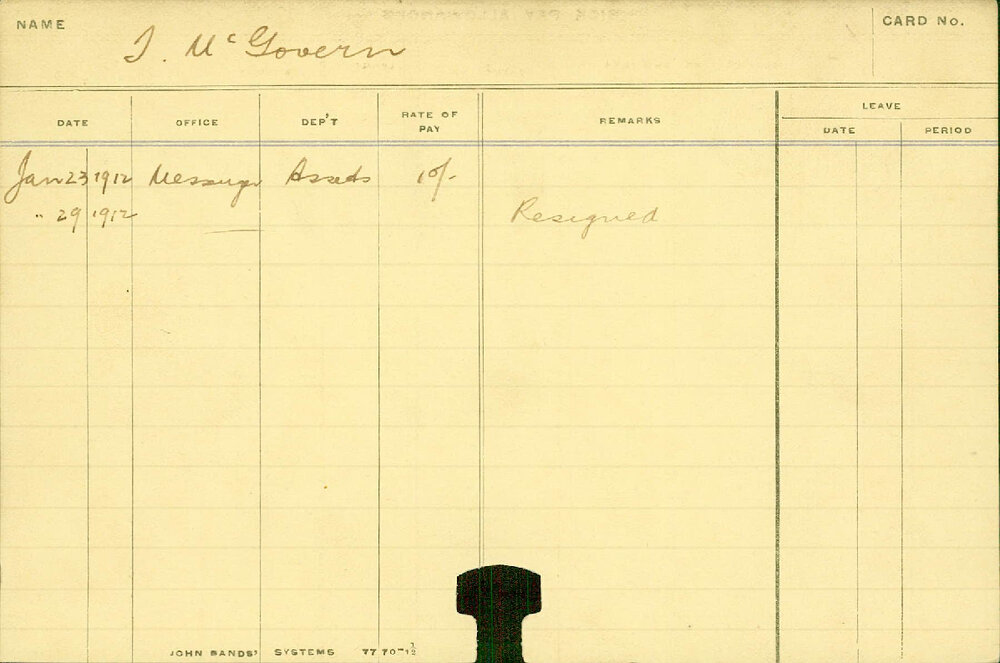 NAME
J. McGovern
CARD No.
DATE OFFICE DEP'T RATE OF PAY REMARKS LEAVE
DATE PERIOD
Jan 23 1912 Messenger Assets 10/-
" 29 1912 Resigned
JOHN SANDS' SYSTEMS 77 70-1/12